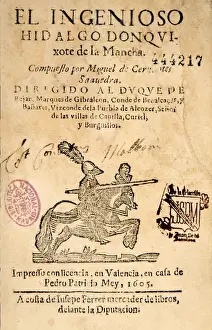 EL INGENIOSO
HIDALGO DON QVI-
xote de la Mancha.
444217
Compuesto por Miguel de Ceruantes
Saauedra.
DIRIGIDO AL DVQVE DE
Bejar, Marques de Gibraleon, Conde de Benalcaçar, y
Bañares, Vizconde de la Puebla de Alcozer, Señor
de las villas de Capilla, Curiel,
y Burguillos.
Impresso con licencia, en Valencia, en casa de
Pedro Patricio Mey, 1605.
A costa de Iusepe Ferrer mercader de libros,
delante la Diputacion.